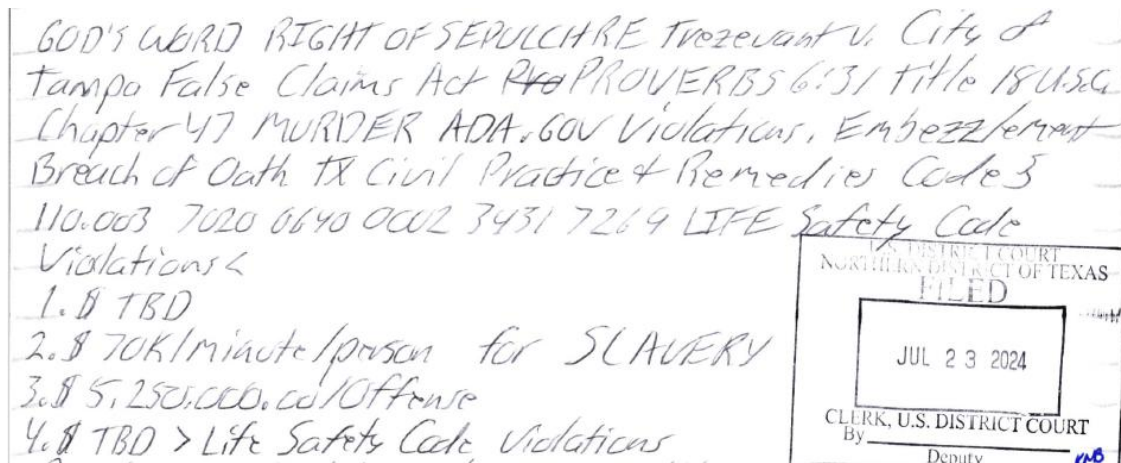 GOD'S WORD RIGHT OF SEPULCHRE Trezevant v. City of
Tampa False Claims Act Pro PROVERBS 6:31 Title 18 U.S.C.
Chapter 47 MURDER ADA.GOV Violations, Embezzlement
Breach of Oath TX Civil Practice & Remedies Code §
110.003 7020 0640 0002 3431 7269 LIFE Safety Code
Violations <
1. $ TBD
2. $ 70K/minute/person for SLAVERY
3. $ 5,250,000.00/Offense
4. $ TBD > Life Safety Code Violations
U.S. DISTRICT COURT
NORTHERN DISTRICT OF TEXAS
FILED
JUL 23 2024
CLERK, U.S. DISTRICT COURT
By
Deputy